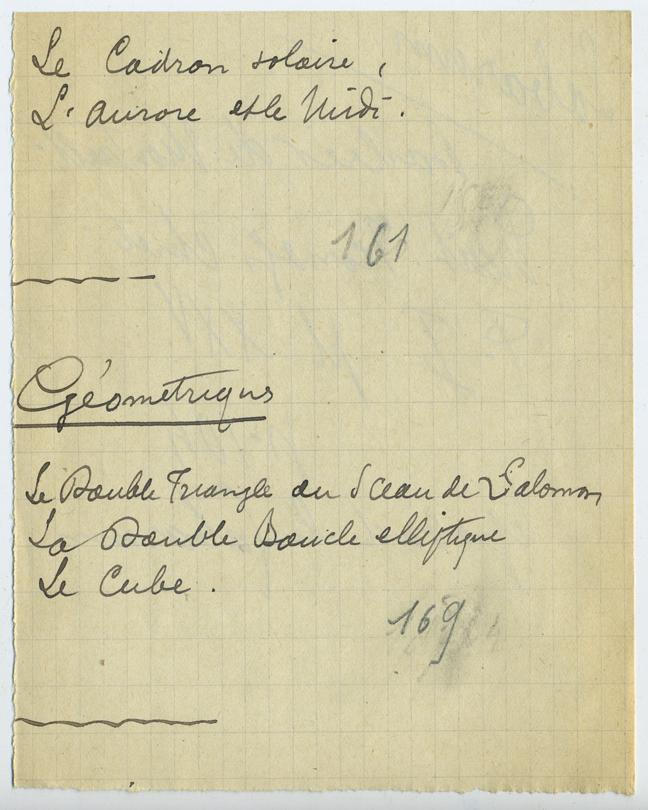 Le Cadran solaire,
L'aurore et le Midi.
161
Géométriques
Le Double Triangle ou Sceau de Salomon
La Double Boucle elliptique
Le Cube.
169